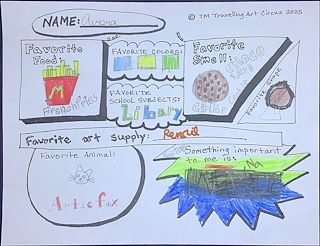 NAME: Aurora
© TM Travelling Art Circus 2025
Favorite Food:
M
Frenchfries
FAVORITE COLORS:
FAVORITE SCHOOL SUBJECTS:
Library
Favorite Smell
CHOCO
Favorite Shape
Favorite art supply: Pencil
Favorite Animal:
Artic fox
Something important to me is: